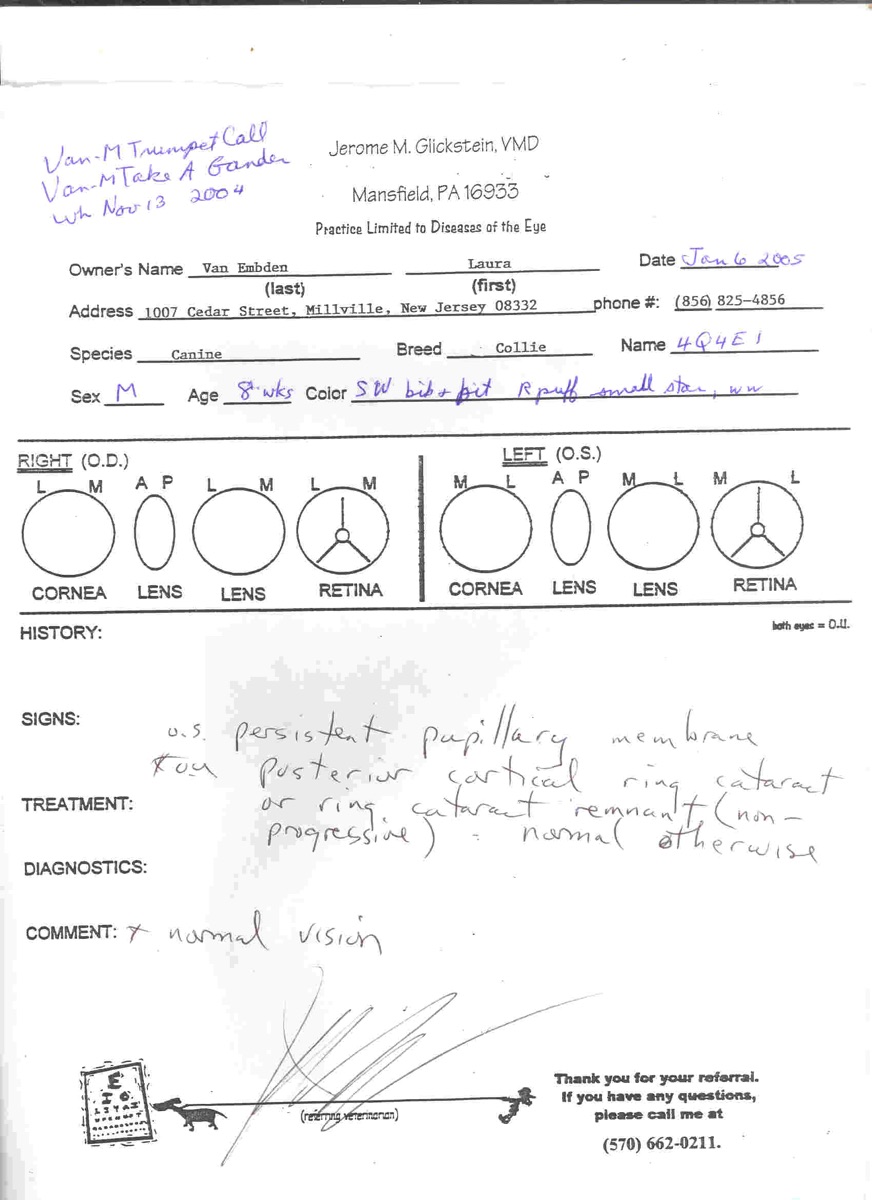 Van-M Trumpet Call
Van-M Take A Gander
wh Nov 13 2004
Jerome M. Glickstein, VMD
Mansfield, PA 16933
Practice Limited to Diseases of the Eye
Owner's Name Van Embden Laura Date Jan 6 2005
(last) (first)
Address 1007 Cedar Street, Millville, New Jersey 08332 phone #: (856) 825-4856
Species Canine Breed Collie Name 4Q4E1
Sex M Age 8 wks Color SW bib + R puff small star, ww
RIGHT (O.D.) LEFT (O.S.)
L M A P L M L M M L A P M L M L
CORNEA LENS LENS RETINA CORNEA LENS LENS RETINA
HISTORY: both eyes = O.U.
SIGNS: o.s. persistent pupillary membrane
ou posterior cortical ring cataract
TREATMENT: or ring cataract remnant (non-
progressive) - normal otherwise
DIAGNOSTICS:
COMMENT: + normal vision
E
(referring veterinarian)
Thank you for your referral.
If you have any questions,
please call me at
(570) 662-0211.